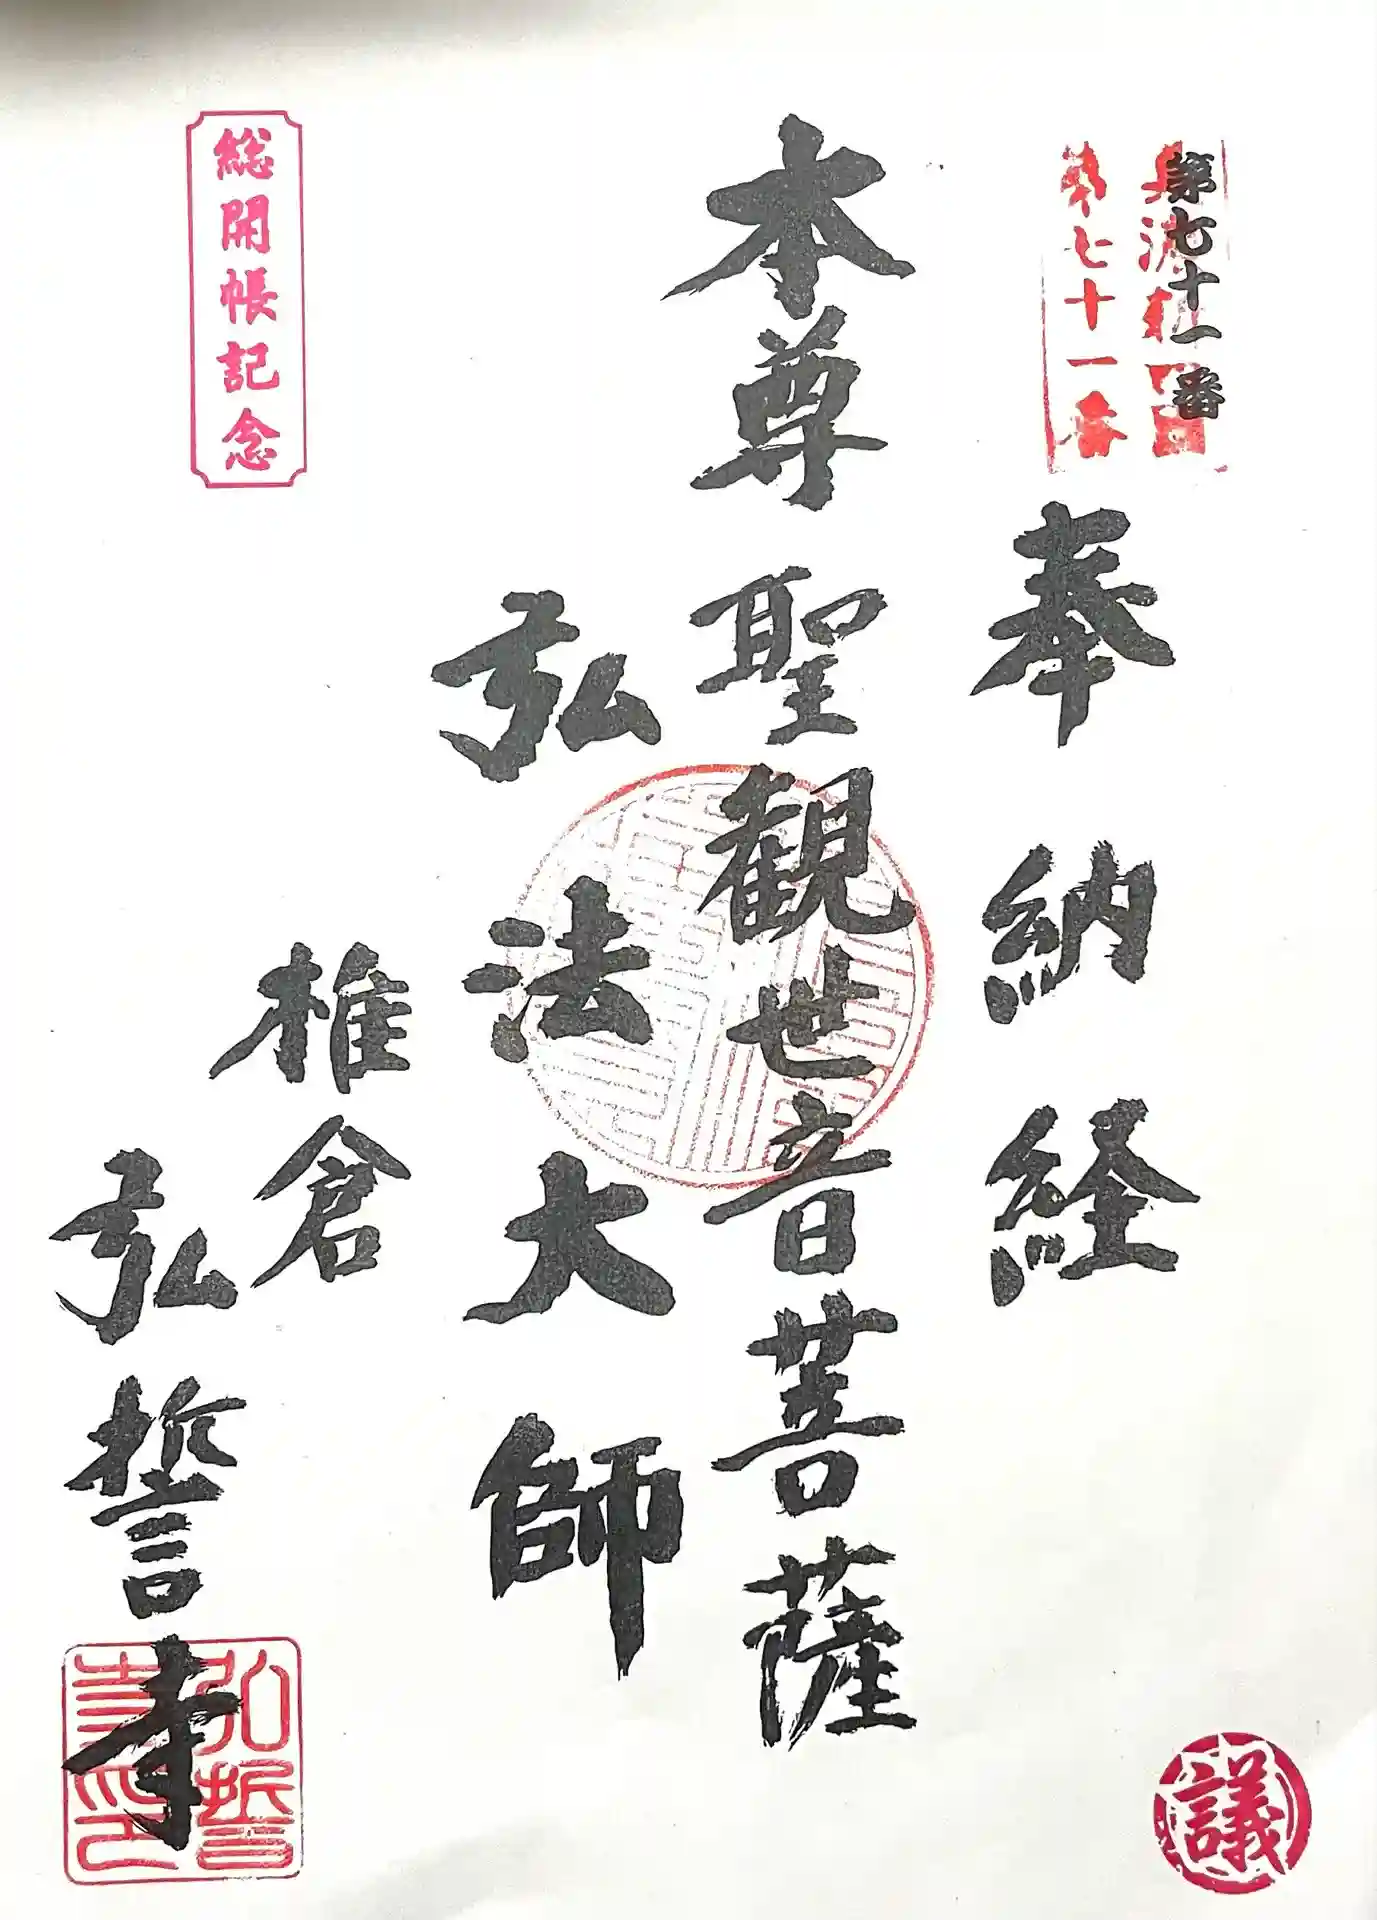 第七十一番
第七十一番
奉納経
本尊 聖観世音菩薩
弘法大師
椎倉
弘誓寺
総開帳記念
弘誓寺印
議